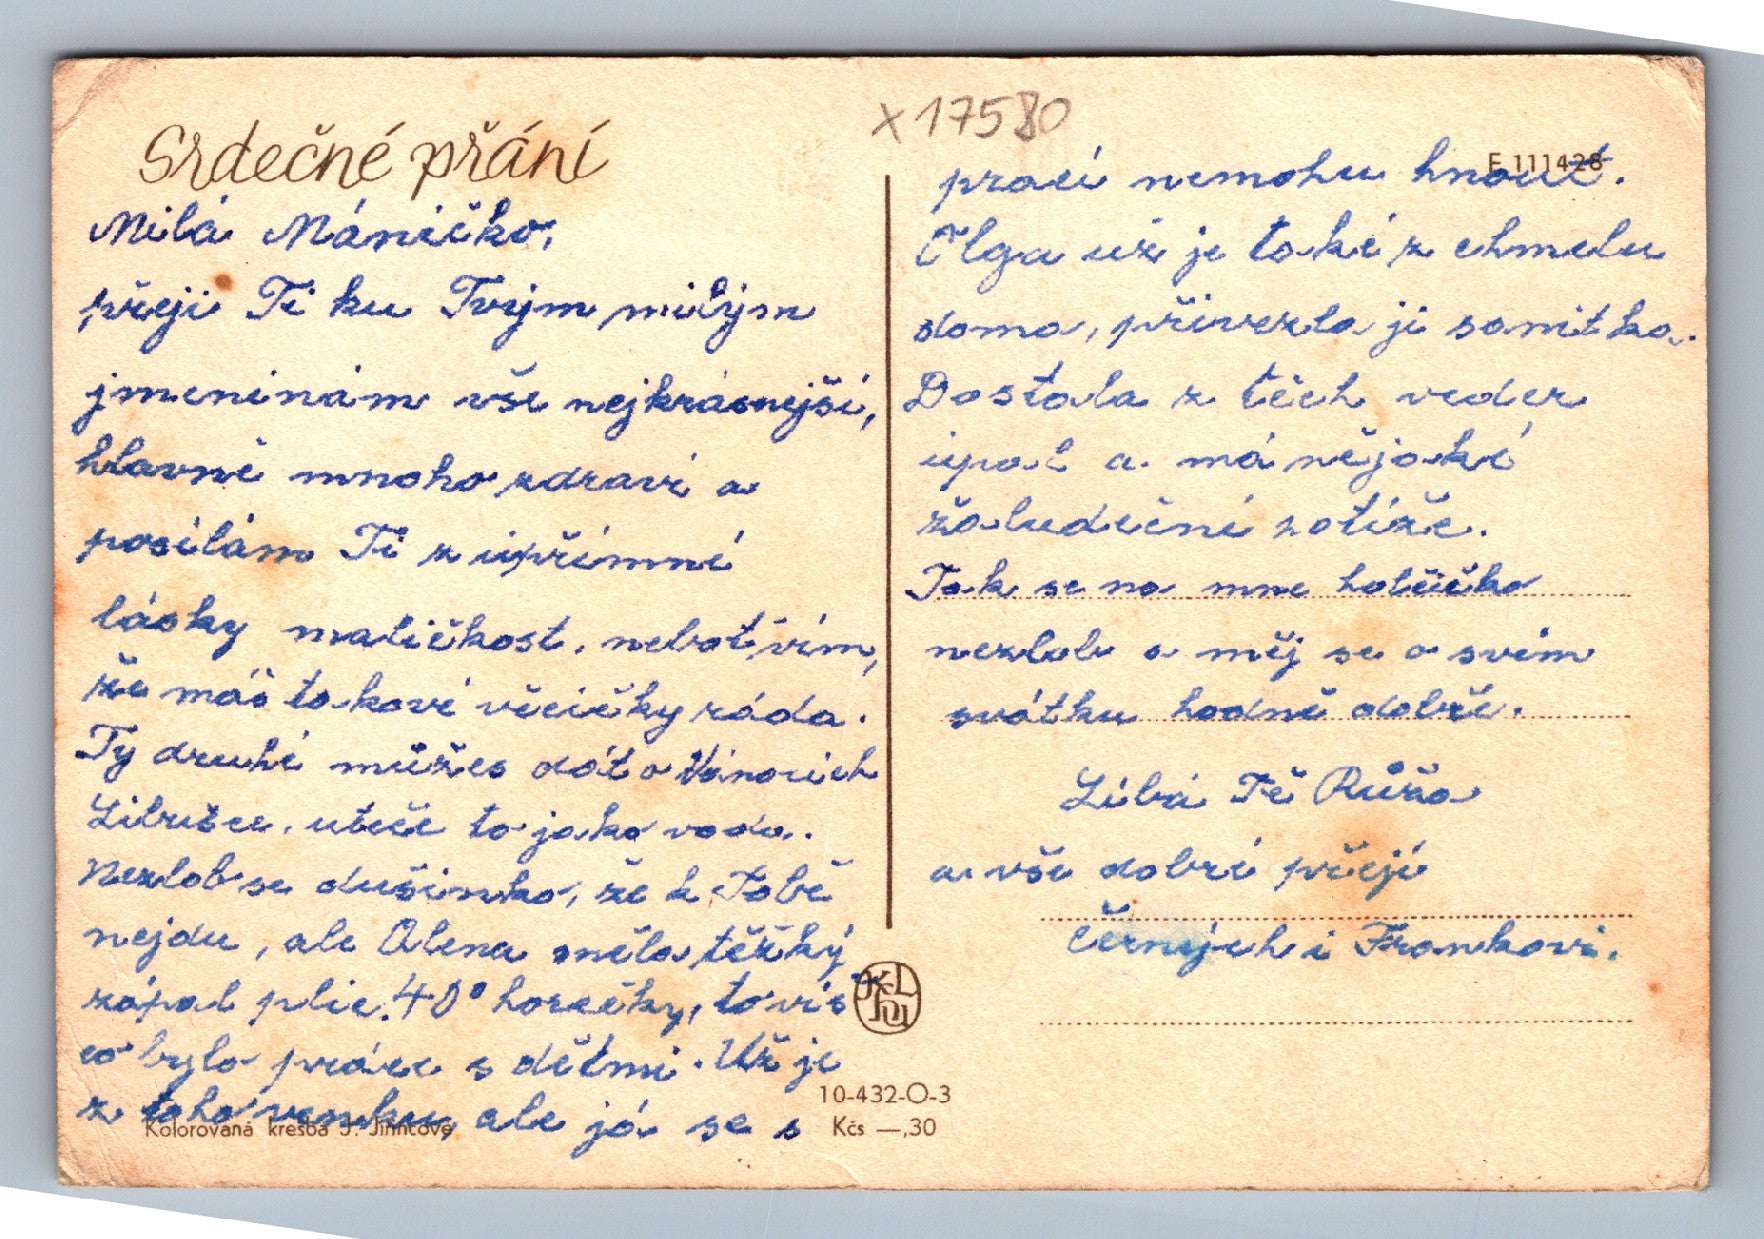 x 17580
Srdečné přání
F 111428
Milá Máničko,
přeji Ti ku Tvým milým
jmeninám vše nejkrásnejší,
hlavně mnoho zdraví a
posílám Ti z upřímné
lásky maličkost, neboť vím,
že máš takové věcičky ráda.
Ty druhé můžeš dát o Vánocích
Libušce, uteče to jako voda.
Nezlob se dušinko, že k Tobě
nejdu, ale Alena měla těžký
zápal plic. 40° horečky, to víš
co bylo práce s dětmi. Už je
z toho venku, ale já se s
prací nemohu hnout.
Olga už je také z chmelu
doma, přivezla ji sanitka.
Dostala z těch veder
úpal a má nějaké
žaludeční potíže.
Tak se na mne holčičko
nezlob a měj se o svém
svátku hodně dobře.
Líbá Tě Růža
a vše dobré přejí
Černých i Frankovi.
KLHU
10-432-O-3
Kolorovaná kresba J. Jinntové
Kčs —,30